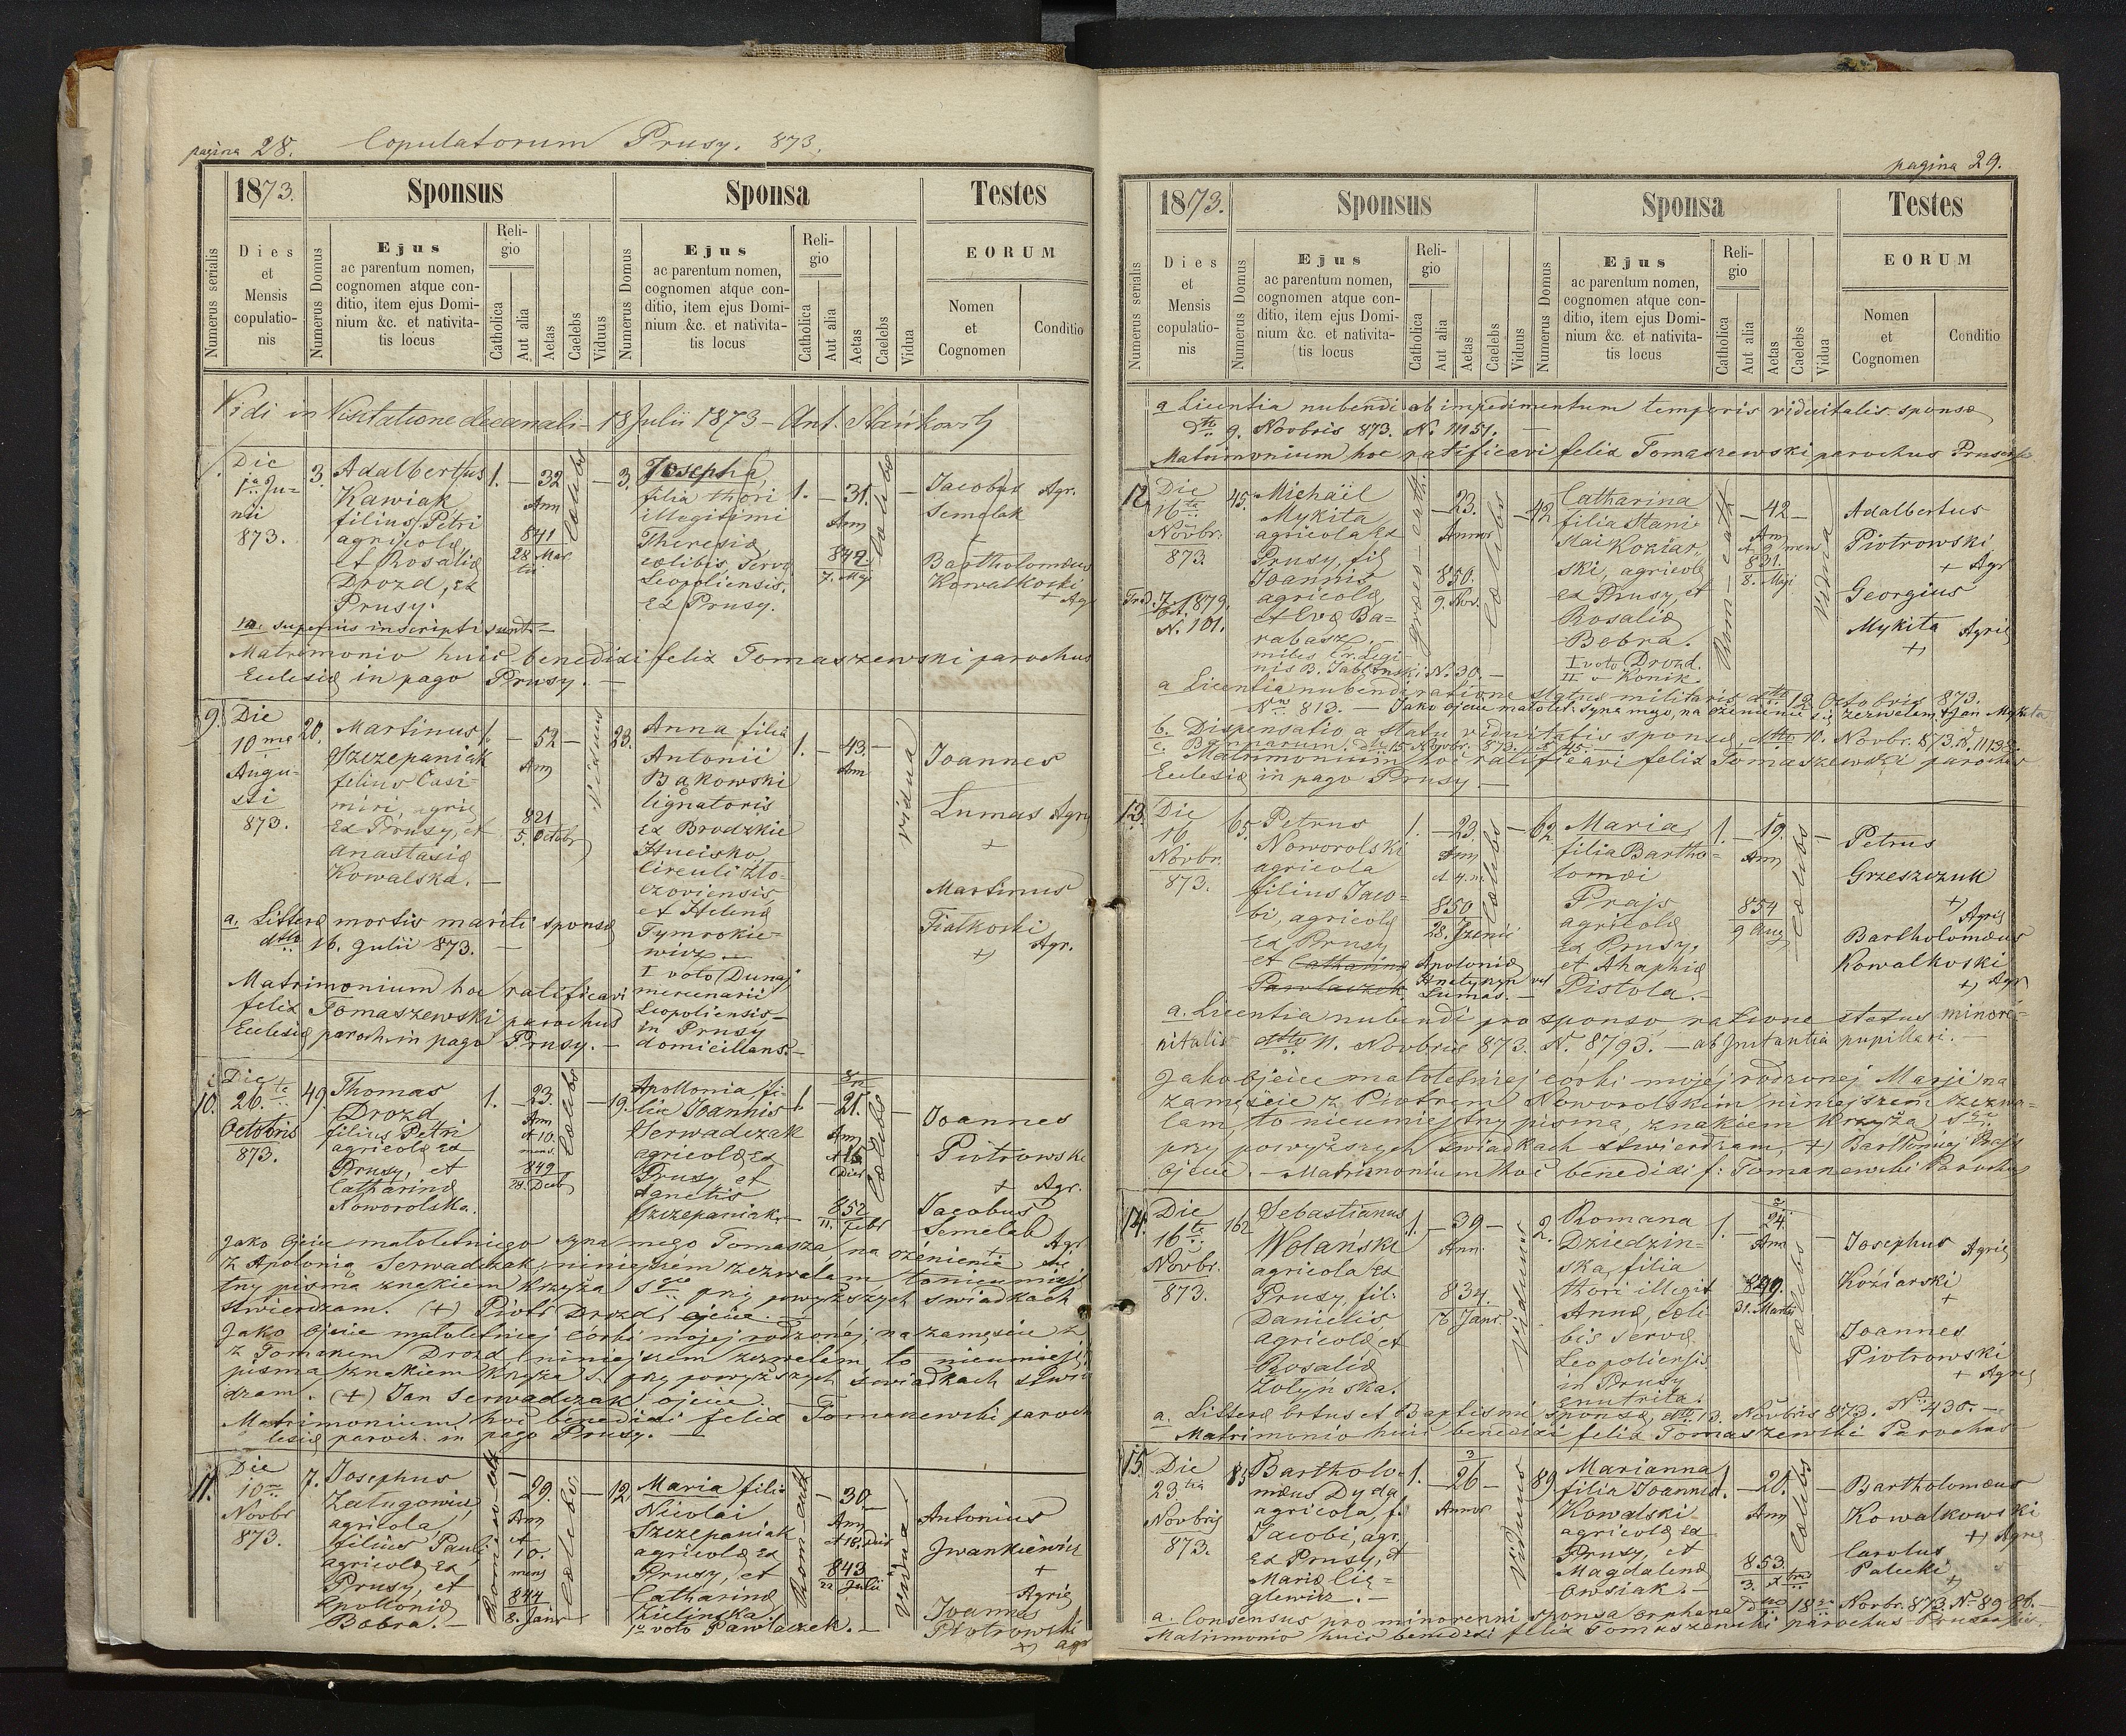 pagina 28. Copulatorum Prusy. 873.
1873. Sponsus Sponsa Testes
Numerus serialis
Dies et Mensis copulationis
Numerus Domus
Ejus ac parentum nomen, cognomen atque conditio, item ejus Dominium &c. et nativitatis locus
Religio
Catholica
Aut alia
Aetas
Caelebs
Viduus
Numerus Domus
Ejus ac parentum nomen, cognomen atque conditio, item ejus Dominium &c. et nativitatis locus
Religio
Catholica
Aut alia
Aetas
Caelebs
Vidua
EORUM
Nomen et Cognomen
Conditio
Vidi in Visitatione decanali 18 Julii 1873 – Ant.
Die
Ju-
nii
873.
3.
Adalbertus
Kawiak
filius Petri
agricolæ
et Rosaliæ
Drozd, ex
Prusy.
1. – 32
Ann
841
28 Mar
tii
Cœlebs
3.
Josepha
filia thori
illegitimi
Theresiæ
cœlibis, servæ
Leopoliensis.
Ex Prusy.
1. – 31. –
Ann
842
7. Maj
Cœlebs
Jacobus Agr.
Semelak
Bartholomæus
Kowalkoski
+ Ag
superius inscripti sunt. –
Matrimonio huic benedixi felix Tomaszewski parochus
Eclesiæ in pago Prusy. –
9.
Die
10 ma
Augu-
sti
873.
20.
Martinus
Szczepaniak
filius Casi-
miri, agric
Ex Prusy, et
Anastasiæ
Kowalska. –
1. – 52 –
Ann
821
5. Octobr
Viduus
23.
Anna filia
Antonii
Bąkowski
lignatoris
Ex Brodzkie
Hucisko
Circuli Zło-
czoviensis
et Helenæ
Tymrokie-
wicz –
I voto Dunaj
mercenarii
Leopoliensis
in Prusy
domicilians. –
1. – 43. –
Ann
Vidua
Joannes
Lumas Agri
+
Martinus
Fiałkoski
+ Agr.
a. Litteræ mortis mariti sponsæ
dtto 16. Julii 873. –
Matrimonium hoc ratificavi
felix Tomaszewski parochus
Eclesiæ paroch. in pago Prusy. –
10.
Die
26. te
Octobris
873.
49.
Thomas
Drozd
filius Petri
agricolæ Ex
Prusy, et
Catharinæ
Noworolska.
1. – 23. –
Ann
et 10.
mens.
849
28. Decb
Cœlebs
19.
Apollonia, fi-
lia Joannis
Serwadczak
agricolæ Ex
Prusy, et
Agnetis
Szczepaniak. –
1 – 21. –
Ann
dies
852
11. Febr
Cœlebs
Joannes
Piotrowski
+ Agr.
Jacobus
Semelak
Agr
Jako Ojciec małoletniego syna mego Tomasza na ożenienie się
z Apolonią Serwadczak, niniejszém zezwalam to nieumieję
tny pisma znakiem krzyża Sgo przy powyższych świadkach
stwierdzam. (+) Piotr Drozd, ojciec.
Jako Ojciec małoletniej córki mojej rodzonéj, na zamęście z
z Tomaszem Drozd, niniejszem zezwalam, to nieumiejęt
pisma znakiem krzyża S. przy powyższych świadkach stwier
dzam. (+) Jan Serwadczak ojciec. –
Matrimonium hoc benedixi felix Tomaszewski paroch
lesiæ paroch. in pago Prusy. –
11.
Die
10 ma
Novbr
873.
7.
Josephus
Załugowicz
agricola,
filius Pauli
agricolæ Ex
Prusy, et
Apolloniæ
Bobra. –
29. –
Ann
et
10.
mens
844
8. Janr
Cœlebs
12
Maria filia
Nicolai
Szczepaniak
agricolæ Ex
Prusy, et
Catharinæ
Zielinska.
1o voto Pawlaczek. –
Rom cath
– 30. –
Ann
843
22 Julii
Vidua
Antonius
Jwankiewicz
+
Agric
Joannes
Piotrowski
+) agr
pagina 29.
1873. Sponsus Sponsa Testes
Numerus serialis
Dies et Mensis copulationis
Numerus Domus
Ejus ac parentum nomen, cognomen atque conditio, item ejus Dominium &c. et nativitatis locus
Religio
Catholica
Aut alia
Aetas
Caelebs
Viduus
Numerus Domus
Ejus ac parentum nomen, cognomen atque conditio, item ejus Dominium &c. et nativitatis locus
Religio
Catholica
Aut alia
Aetas
Caelebs
Vidua
EORUM
Nomen et Cognomen
Conditio
a Licentia nubendi ob impedimentum temporis viduitalis sponsæ
dtto 9. Novbris 873. No 11151. –
Matrimonium hoc ratificavi felix Tomaszewski parochus
12.
Die
16 ta
Novbr.
873.
1879.
N. 101.
45.
Michäil
Mykita
agricola Ex
Prusy, fil
Joannis
agricolæ
et Evæ Ba-
rabasz. –
miles
No 30. –
græco – cath.
– 23. –
Annor
850.
9. Nov.
Cœlebs
42
Catharina
filia Stani-
slai Koziar-
ski, agricolæ
ex Prusy, et
Rosaliæ
Bobra.
I voto Drozd.
II – Konik
Rom – cath
– 42 –
Ann
831.
8. Maji
Vidua
Adalbertus
Piotrowski
+ Agr
Georgius
Mykita Agric
+)
a Licentia nubendi ratione status militaris dtto 12 Octobris 873.
No 813. – Jako ojciec małolet. syna mego, na ożenienie się zezwalam + Jan Mykita
b. Dispensatio a statu viduitatis sponsæ dtto 10. Novbr. 873.
c.
Matrimonium hoc ratificavi felix Tomaszewski parochus
Eclesiæ in pago Prusy –
13.
Die
16.
Novbr.
873.
65.
Petrus
Noworolski
agricola
filius Jaco-
bi, agricolæ
Ex Prusy
et Catharinæ Apoloniæ
Pawlaczek Lumas. –
1. – 23. –
Ann
et 4. m.
850
Cœlebs
62
Maria,
filia Bartho-
lomæi
Prajs
agricolæ
Ex Prusy,
et Ahaphiæ
Pistola. –
1. – 19. –
Ann
854
9 Aug
Cœlebs
Petrus
Grzeszczuk
+)
Agric
Bartholomæus
Kowalkoski
+) Agr
a. Licentia nubendi pro sponso ratione status minore-
nitalis dtto 11. Novbris 873. N. 8793. – ab Instantia pupillari. –
Jako Ojciec małoletniej córki mojéj rodzonej Marji na
zamęście z Piotrem Noworolskim niniejszem zezwa-
lam, to nieumiejętny pisma, znakiem Krzyża Sgo
przy powyższych świadkach stwierdzam, +) Bartłomiej Prajs
Ojciec. – Matrimonium hoc benedixi f: Tomaszewski Parochus
14.
Die
16 ta
Novbr.
873.
162
Sebastianus
Wolański
agricola Ex
Prusy, fil:
Danielis
agricolæ, et
Rosaliæ
Żołyńska.
1. – 39 –
Ann.
834.
Janr.
Viduus
2.
Romana
Dziedzin-
ska, filia
thori illegit
Annæ, cœli-
bis servæ
Leopoliensis
in Prusy
enutrita.
1. – 24. –
Ann
849.
31. Martii
Cœlebs
Josephus Agric
Koźiarski
+
Joannes
Piotrowski
+ Agric
a. Litteræ Ortus et Baptismi sponsæ, dtto 13. Novbris 873. No 430. –
Matrimonio huic benedixi felix Tomaszewski Parochus
15.
Die
23 tia
Novbris
873.
85
Bartholo-
mæus Dyda
agricola, f.
Jacobi, agr.
Ex Prusy, et
Mariæ Cię-
glewicz. –
1. – 26 –
Annor
Viduus
89
Marianna
filia Joannis
Kowalski
agricolæ Ex
Prusy, et
Magdalenæ
Owsiak. –
1. – 20. –
Ann
853.
Cœlebs
Bartholomæus
Kowalkowski
+) Agric
Carolus
Pałecki
+)
a. Consensus pro minorenni sponsa orphana dtto 18 Novbr. 873 No 8986. –
Matrimonio huic benedixi felix Tomaszewski parochus